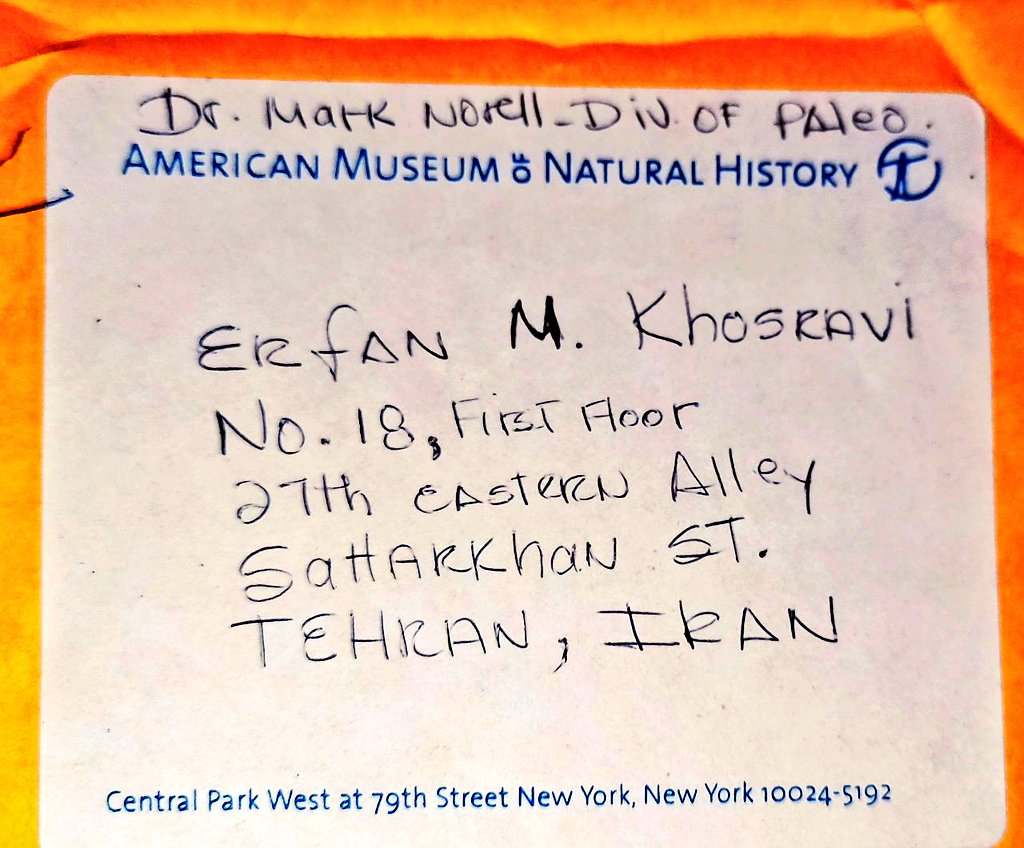 Dr. Mark Norell - Div. OF PAleo.
AMERICAN MUSEUM OF NATURAL HISTORY
ERfAN M. KhOSRAVi
No. 18, FiRST Floor
27th EASTERN Alley
SattARKhAN ST.
TEHRAN, IRAN
Central Park West at 79th Street New York, New York 10024-5192